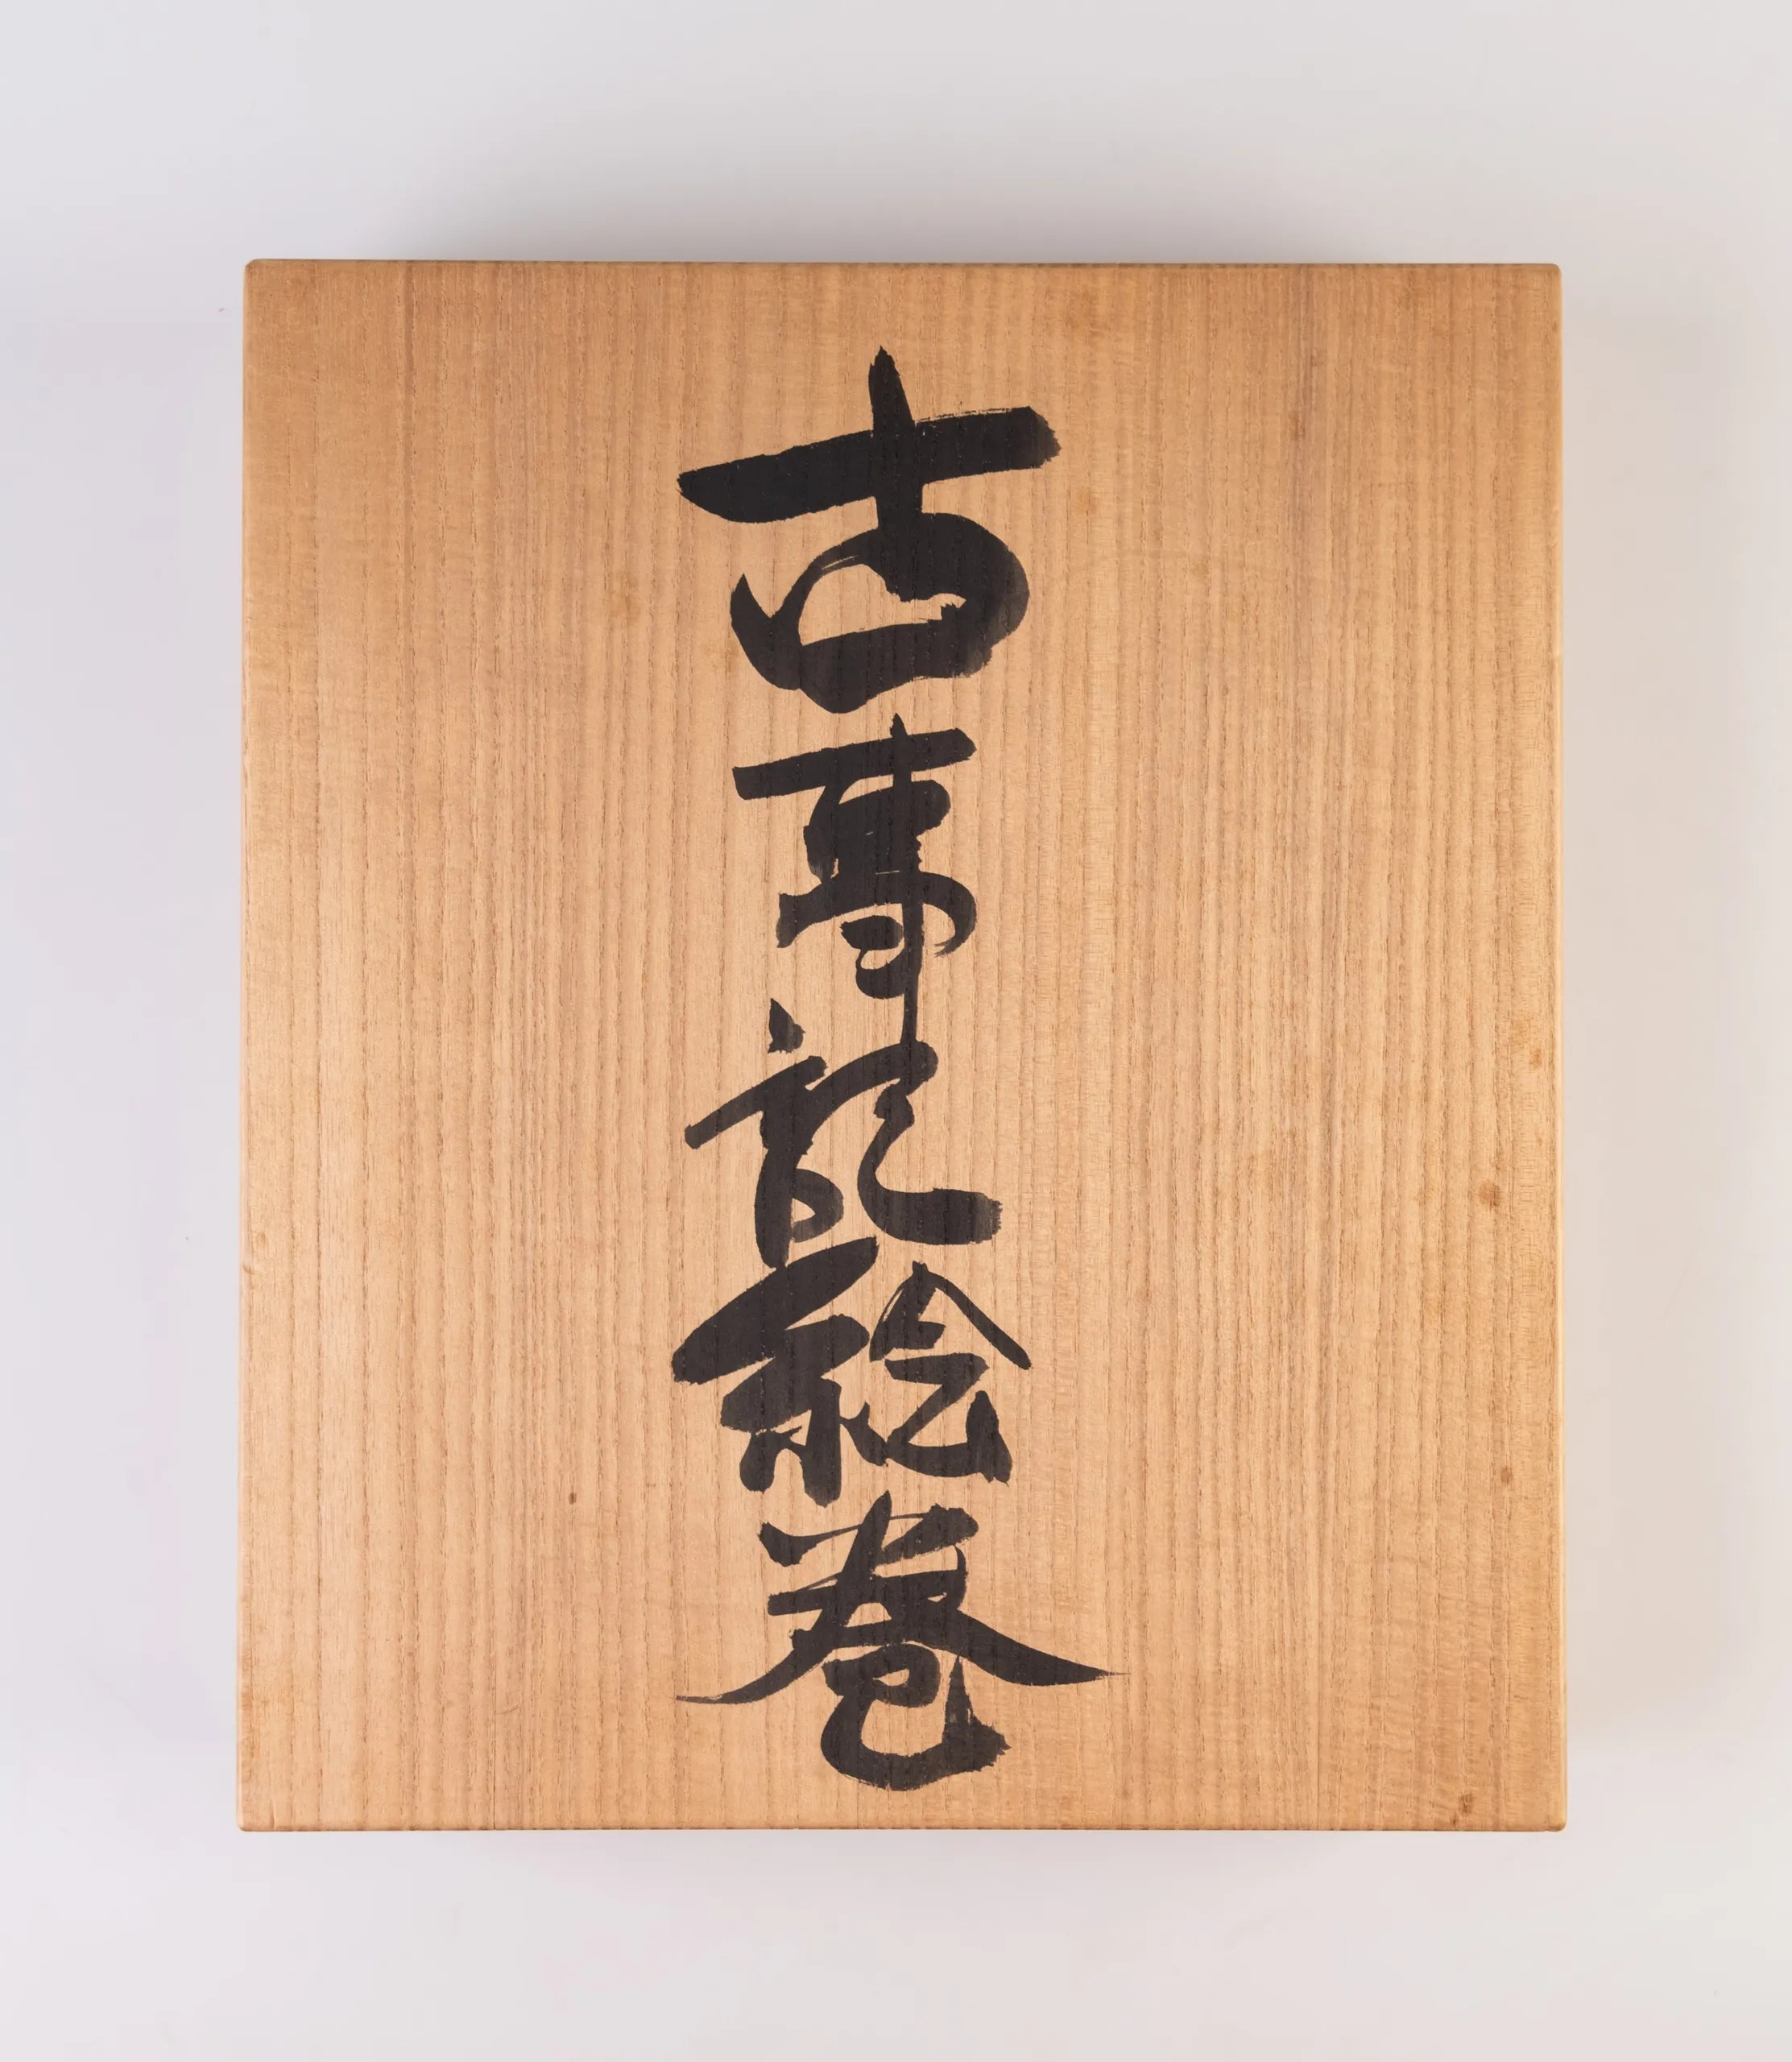 古事記絵巻